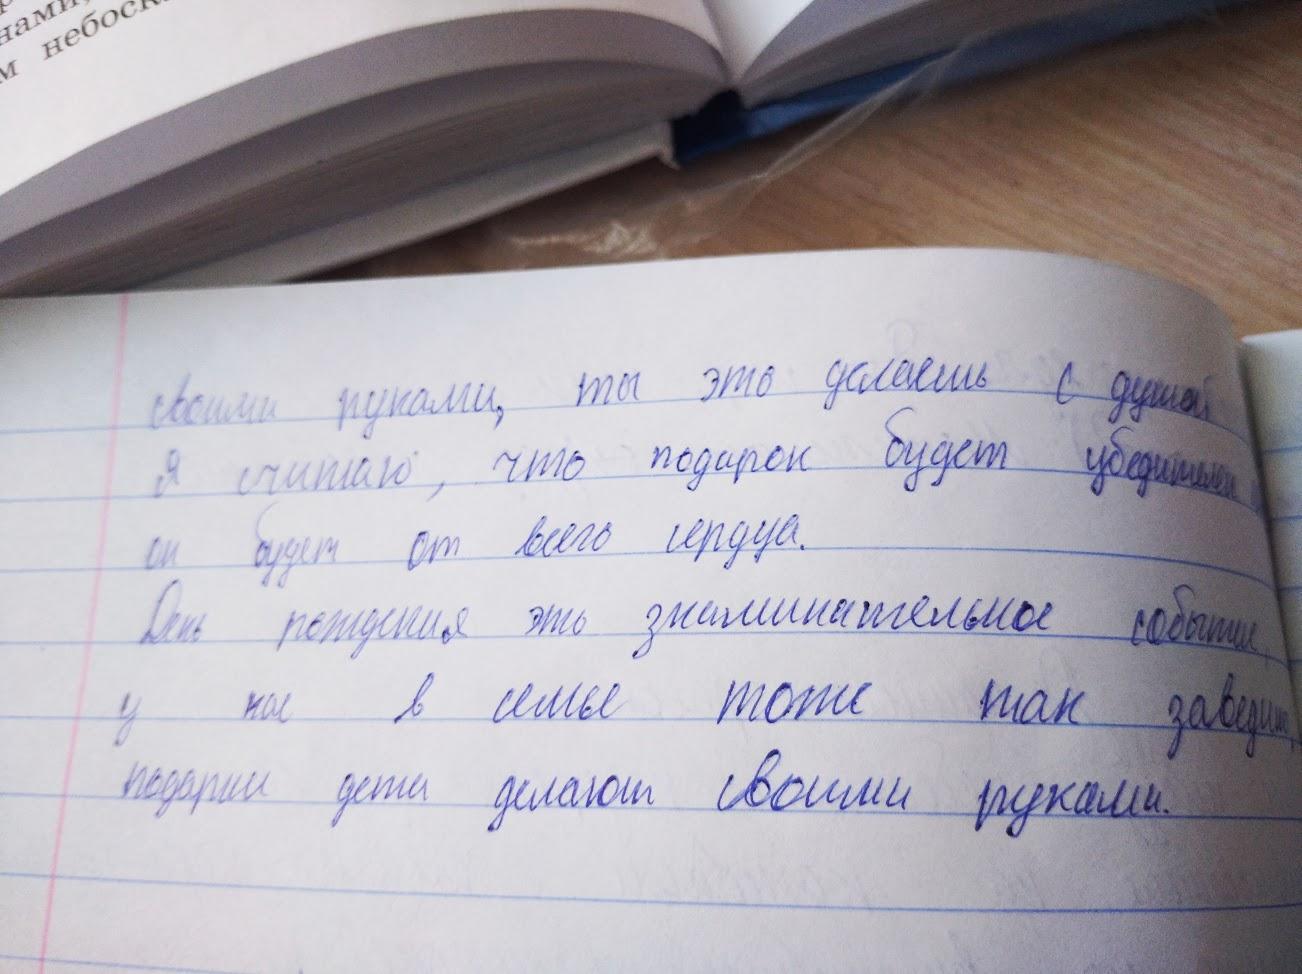 нами,
м небоск
своими руками, ты это делаешь с душой
Я считаю, что подарок будет убедителен
он будет от всего сердца.
День рождения это знаминательное событие,
у нас в семье тоже так
подарки дети делают своими руками.